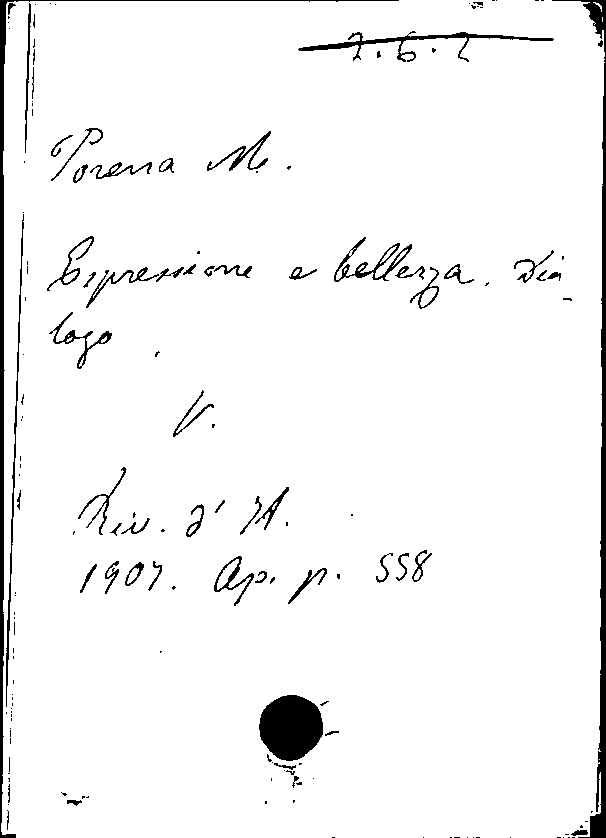 2.6.2
Porena M.
Espressione e bellezza. Dia-
logo.
V.
Riv. d' It.
1907. Ap. p. 558